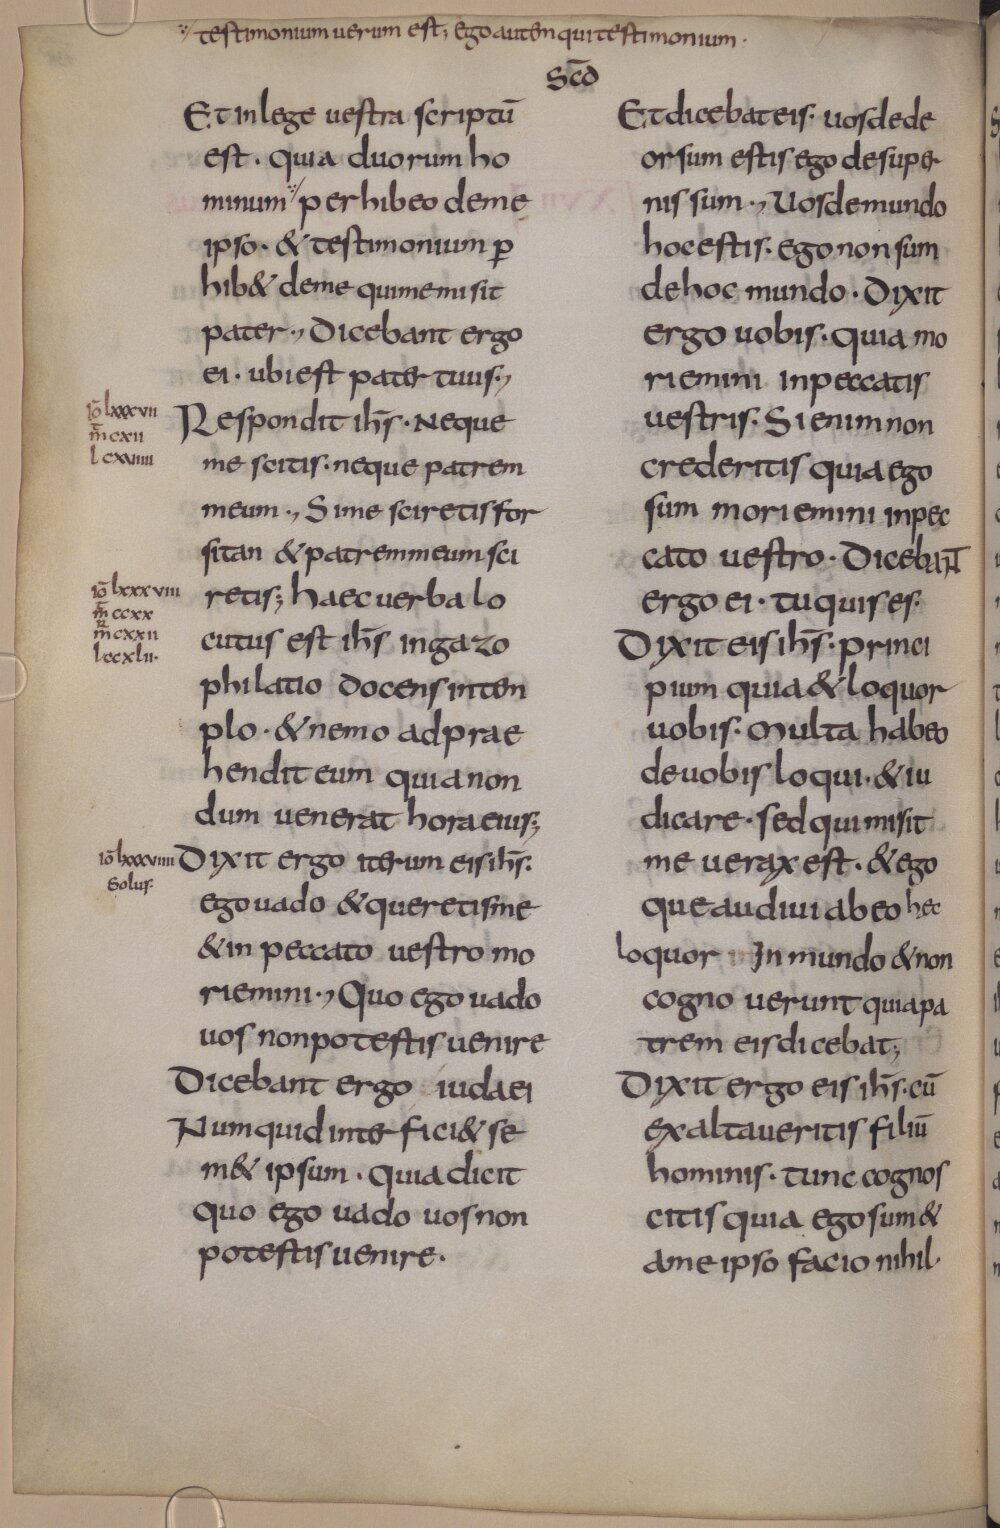 testimonium uerum est; ego autem qui testimonium·
Scd̄
Et in lege uestra scriptū
est· quia duorum ho
minum perhibeo de me
ipso· & testimonium ꝑ
hib& de me qui me misit
pater·, Dicebant ergo
ei· ubi est pater tuus·,
Respondit ihs̄· Neque
me scitis· neque patrem
meum·, Si me sciretis for
sitan & patrem meum sci
retis; haec uerba lo
cutus est ihs̄ in gazo
philatio docens in tem
plo· & nemo adprae
hendit eum quia non
dum uenerat hora eius;
Dixit ergo iterum eis ihs̄·
ego uado & queretis me
& in peccato uestro mo
riemini·, Quo ego uado
uos non potestis uenire
Dicebant ergo iudaei
Numquid interfici& se
m& ipsum· Quia dicit
quo ego uado uos non
potestis uenire·
iō lxxxvii
m̄ cxii
l cxviiii
iō lxxxviii
m̄ ccxx
m̄r cxxii
l ccxlii·
iō lxxxviiii
solus·
Et dicebat eis· uos de de
orsum estis ego de super
nis sum·, Uos de mundo
hoc estis· ego non sum
de hoc mundo· Dixit
ergo uobis· quia mo
riemini in peccatis
uestris· Si enim non
crederitis quia ego
sum moriemini in pec
cato uestro· Dicebant
ergo ei· tu quis es·
Dixit eis ihs̄· princi
pium quia & loquor
uobis· Multa habeo
de uobis loqui· & iu
dicare· sed qui misit
me uerax est· & ego
que audiui ab eo hec
loquor In mundo & non
cognouerunt quia pa
trem eis dicebat;
Dixit ergo eis ihs̄· cū
exaltaueritis filiū
hominis· tunc cognos
citis quia ego sum &
a me ipso facio nihil·